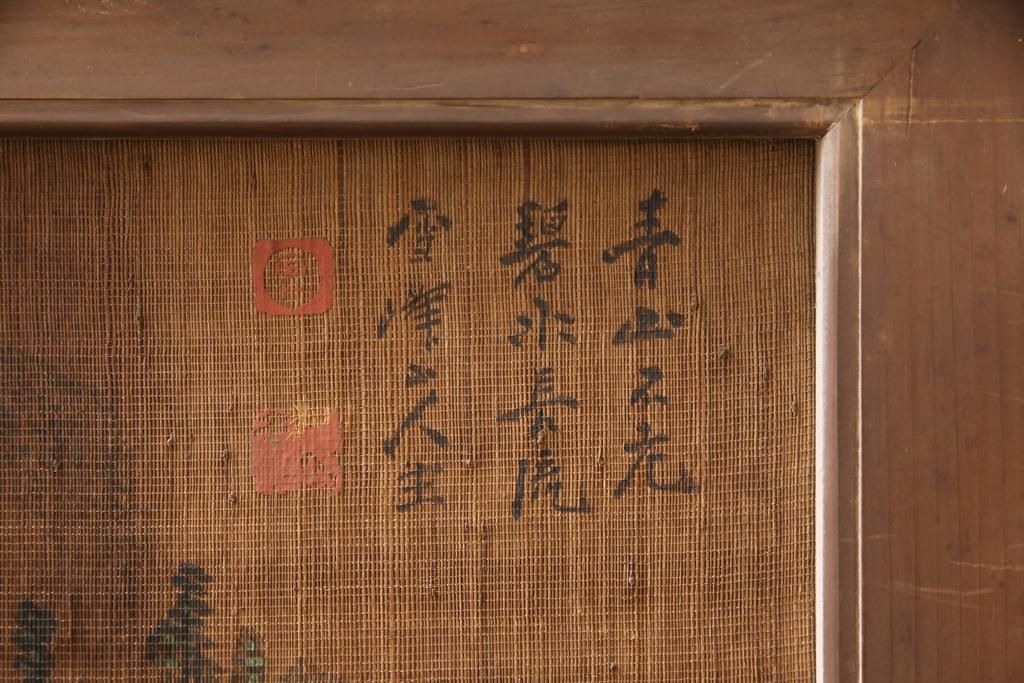 青山不老
碧水長流
雪澤山人生